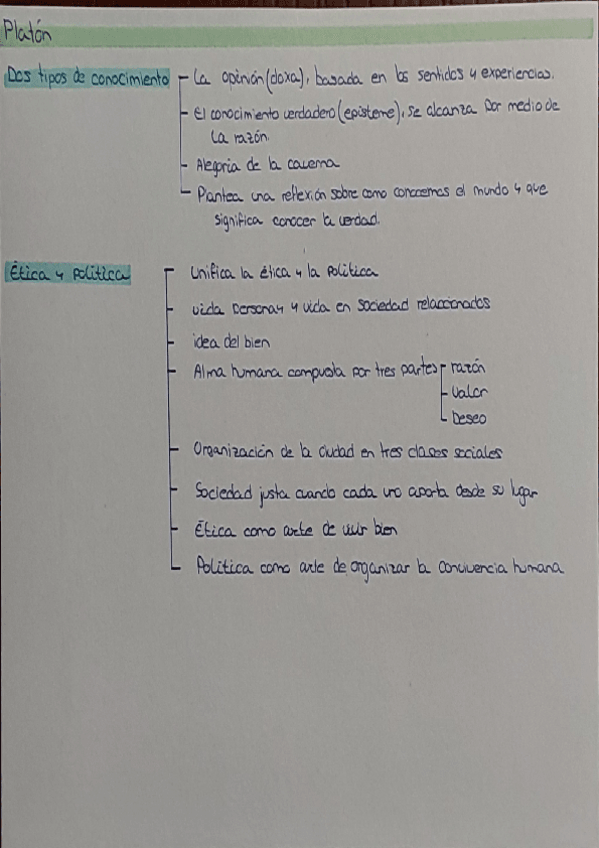 Platón
Dos tipos de conocimiento
La opinión (doxa), basada en los sentidos y experiencias.
El conocimiento verdadero (episteme), se alcanza por medio de
la razón.
Alegoria de la caverna
Plantea una reflexión sobre como conocemos el mundo y que
significa conocer la verdad.
Ética y politica
Unifica la ética y la politica
vida personal y vida en sociedad relaccionados
idea del bien
Alma humana compuesta por tres partes
razón
Valor
Deseo
Organización de la ciudad en tres clases sociales
Sociedad justa cuando cada uno aporta desde su lugar
Ética como arte de vivir bien
Politica como arte de organizar la convivencia humana